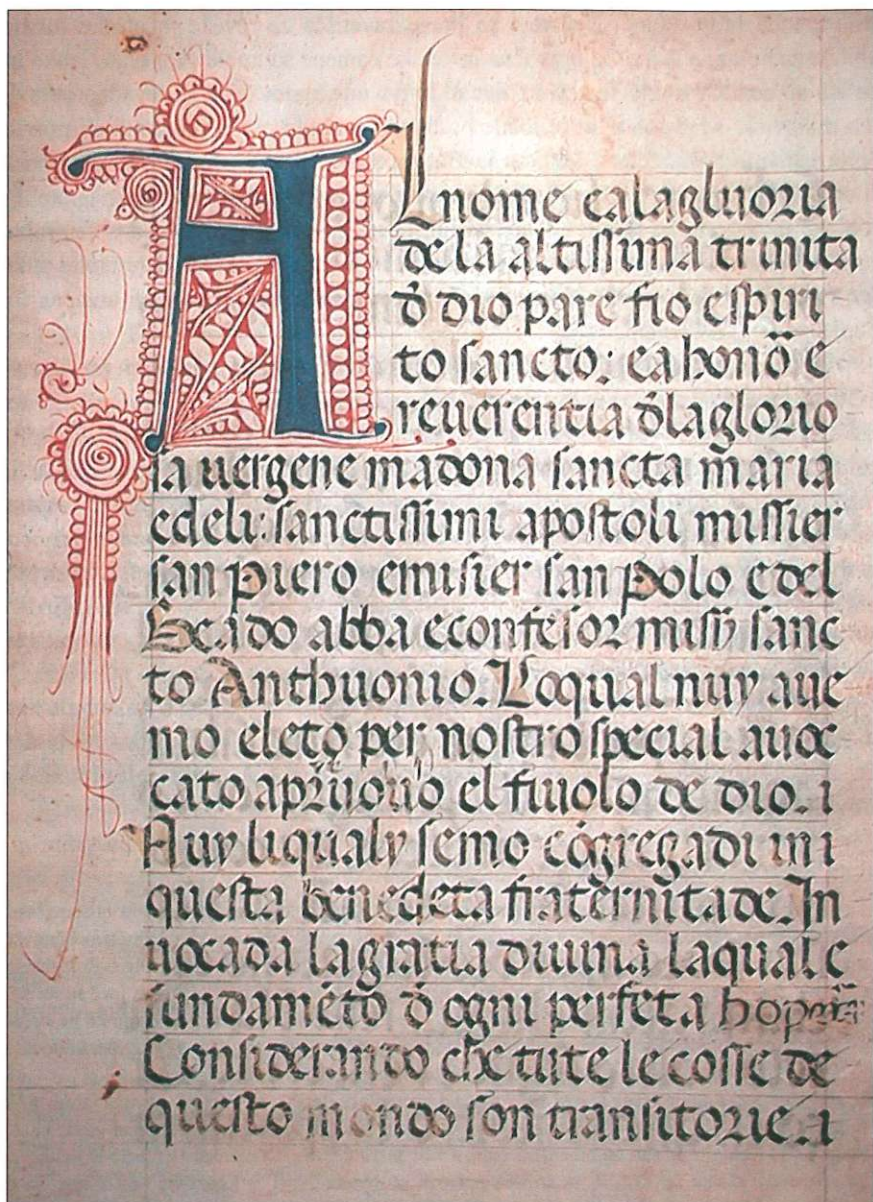 A L nome e a la gluoria
de la altissima trinita
d̄ dio pare fio e spiri
to sancto: e a honō e
reuerentia d̄ la glorio
sa uergene madona sancta maria
e deli sanctissimi apostoli missier
san Piero e misier san Polo e del
Beado abba e confesor misi sanc
to Anthuonio. Lo qual nuy aue
mo eleto per nostro special auo
cato el fiuolo de dio. i
Nuy li qualy semo cōgregadi in i
questa benedeta fraternitade. In
uocada la gratia diuina la qual e
fundamēto d̄ ogni perfeta
Considerando che tute le cosse de
questo mondo son transitorie. i